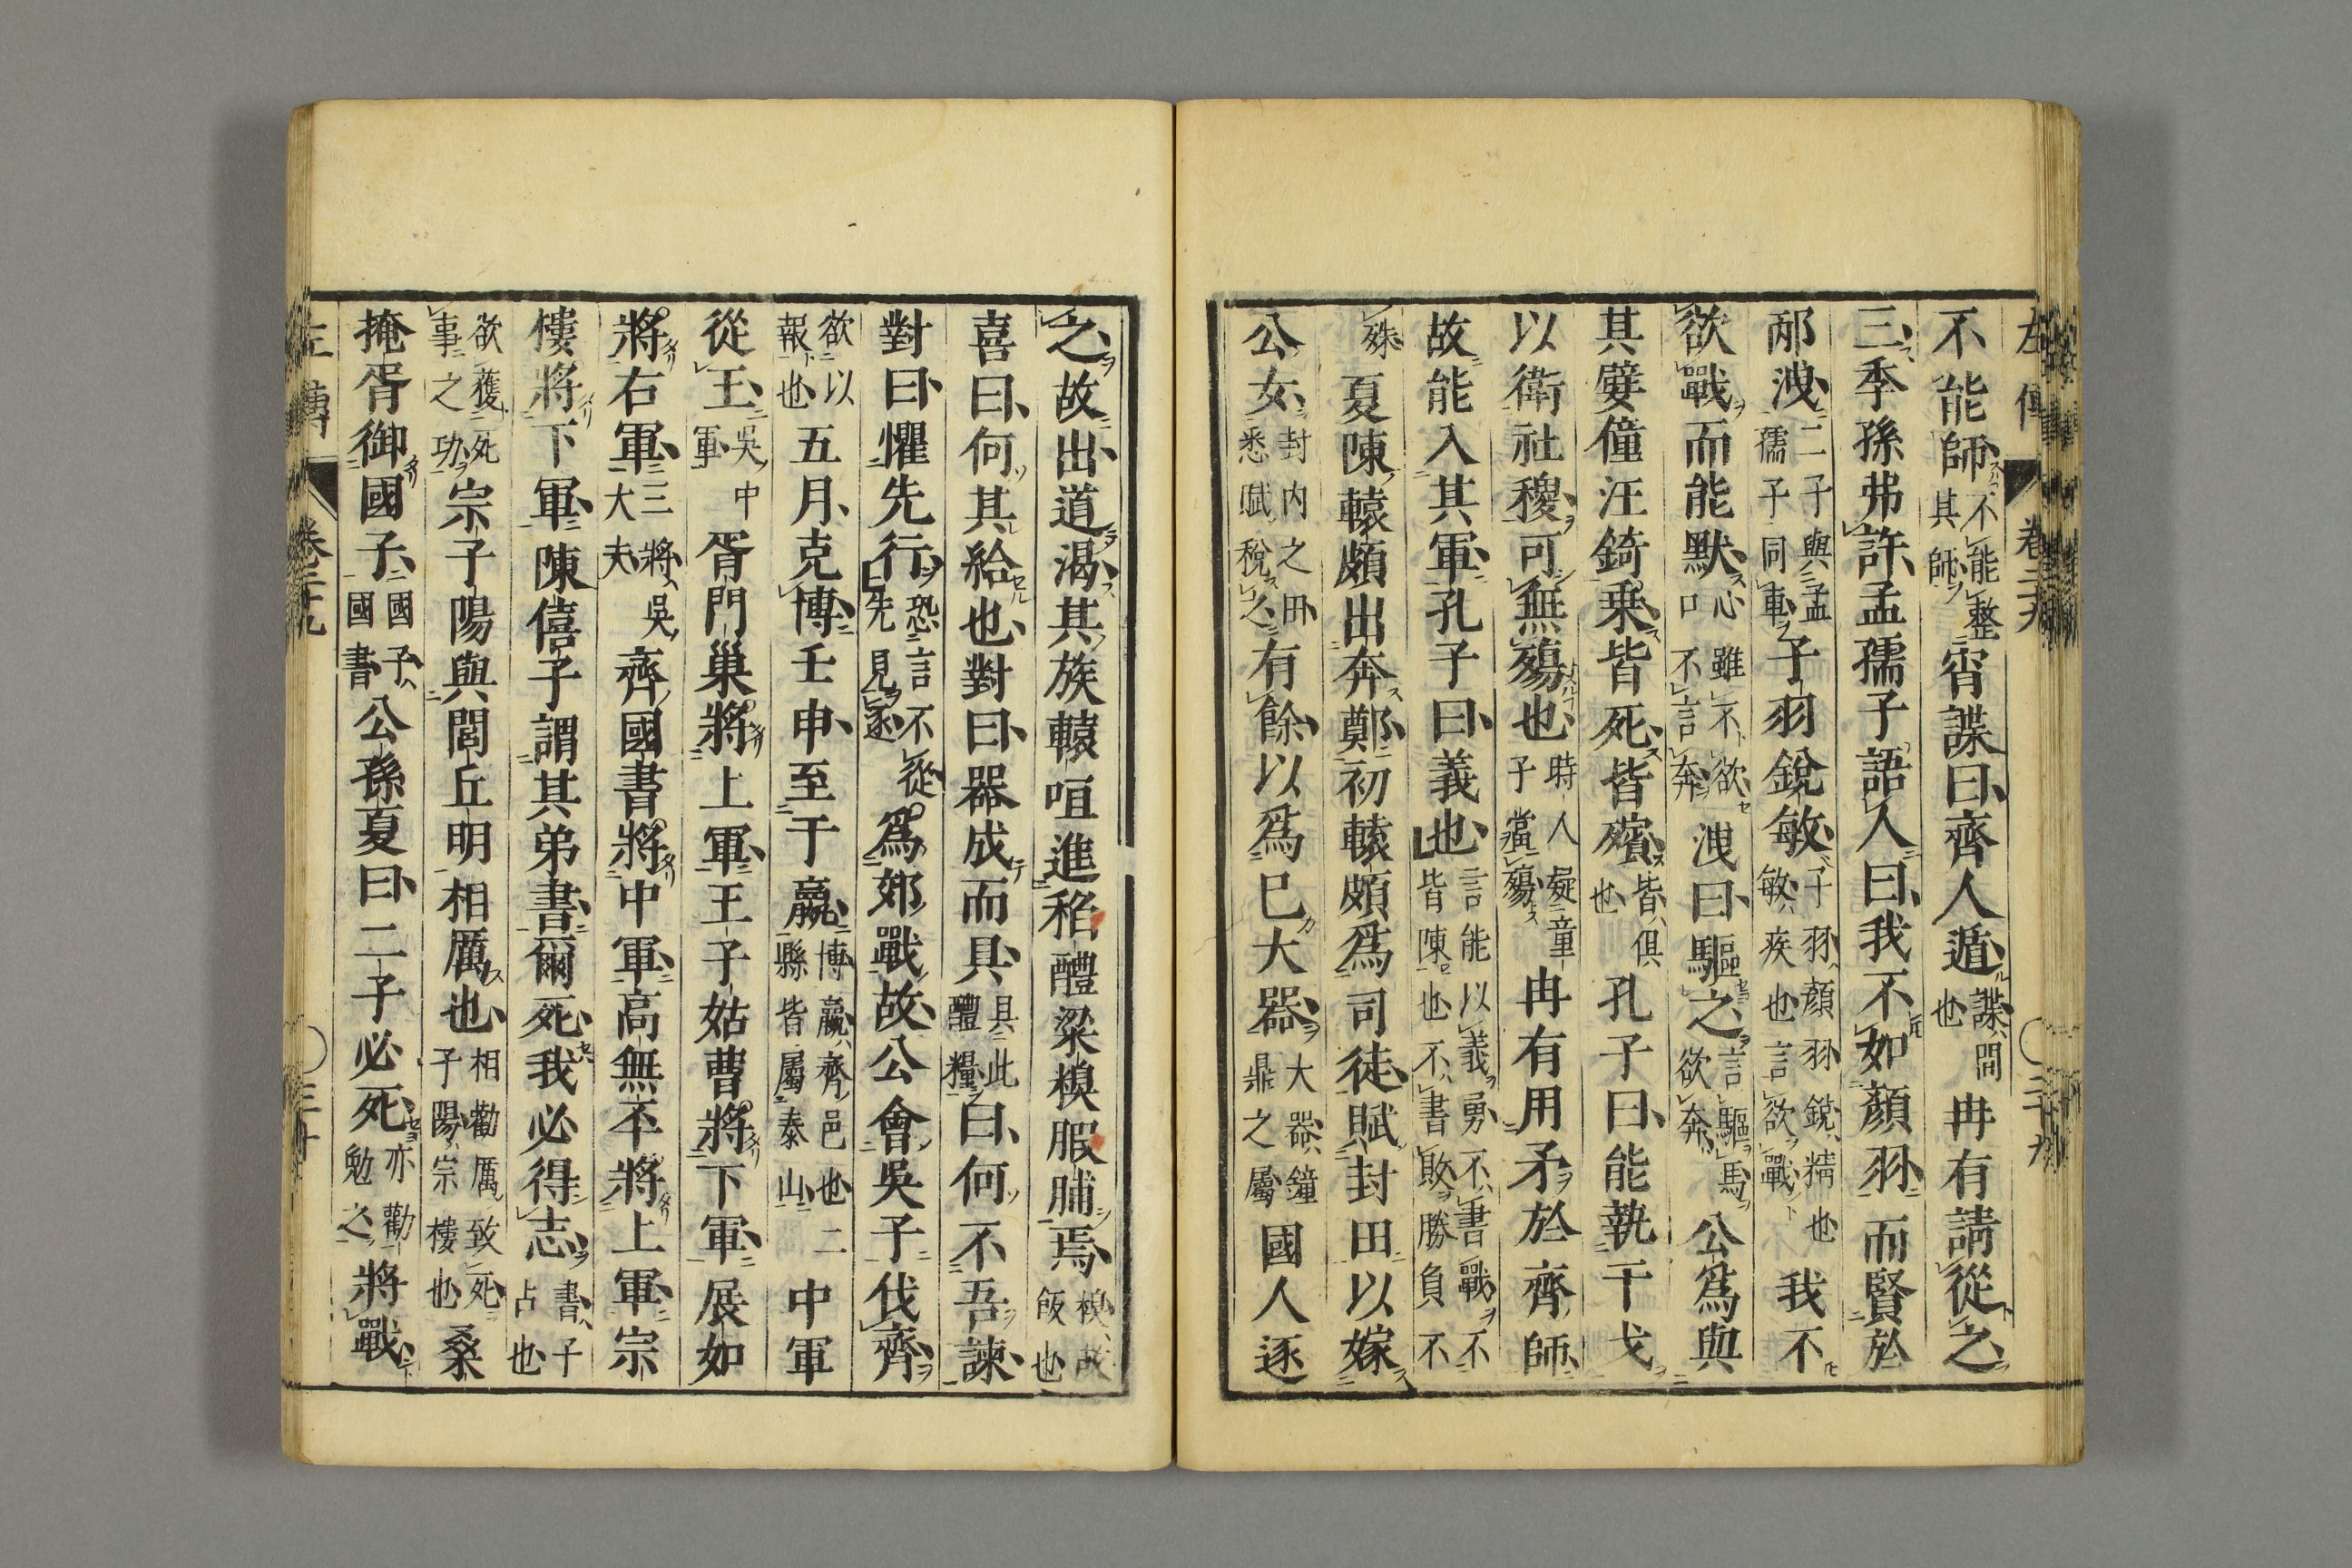 左傳 卷二十九 二十九
不能師不能整其師宵諜曰齊人遁諜間也冉有請從之
三季孫弗許孟孺子語人曰我不如顏羽而賢於
邴洩二子與孟孺子同車子羽銳敏子羽顏羽銳精也敏疾也言欲戰我不
欲戰而能默心雖不欲口不言奔洩曰驅之言驅馬欲奔公爲與
其嬖僮汪錡乗皆死皆殯皆俱也孔子曰能執干戈
以衛社稷可無殤也時人疑童子當殤冉有用矛於齊師
故能入其軍孔子曰義也言能以義勇不書戰不皆陳也不書敗勝負不
殊夏陳轅頗出奔鄭初轅頗爲司徒賦封田以嫁
公女封内之田悉賦稅之有餘以爲已大器大器鐘鼎之屬國人逐
之故出道渴其族轅咺進稻醴粱糗腶脯焉糗故飯也
喜曰何其給也對曰器成而具具此醴糧曰何不吾諫
對曰懼先行恐言不從先見逐爲郊戰故公會吳子伐齊
欲以報也五月克博壬申至于嬴博嬴齊邑也二縣皆屬泰山中軍
從王吳中軍胥門巢將上軍王子姑曹將下軍展如
將右軍三將吳大夫齊國書將中軍高無㔻將上軍宗
樓將下軍陳僖子謂其弟書爾死我必得志書子占也
欲獲死事之功宗子陽與閭丘明相厲也相勸厲致死子陽宗樓也桑
掩胥御國子國子國書公孫夏曰二子必死亦勸勉之將戰
左傳 卷二十九 三十